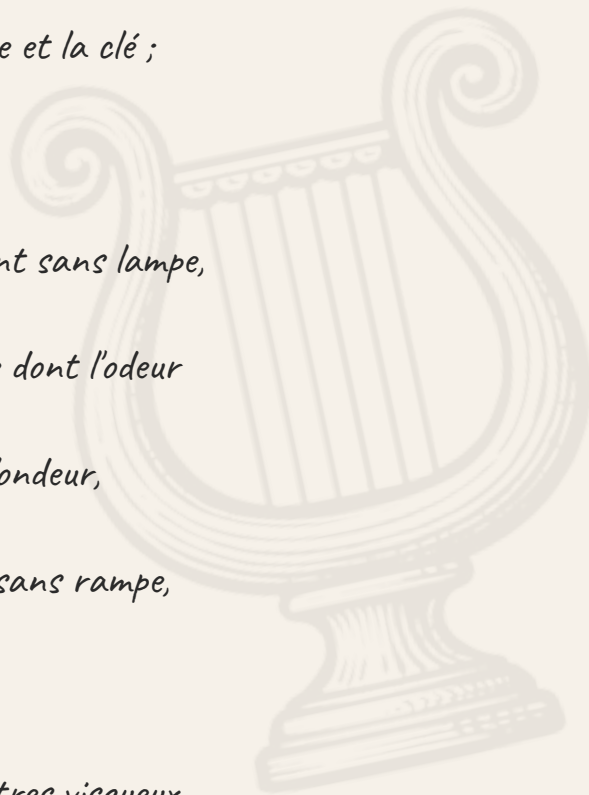 e et la clé ;
nt sans lampe,
dont l'odeur
ondeur,
sans rampe,
tres visqueux